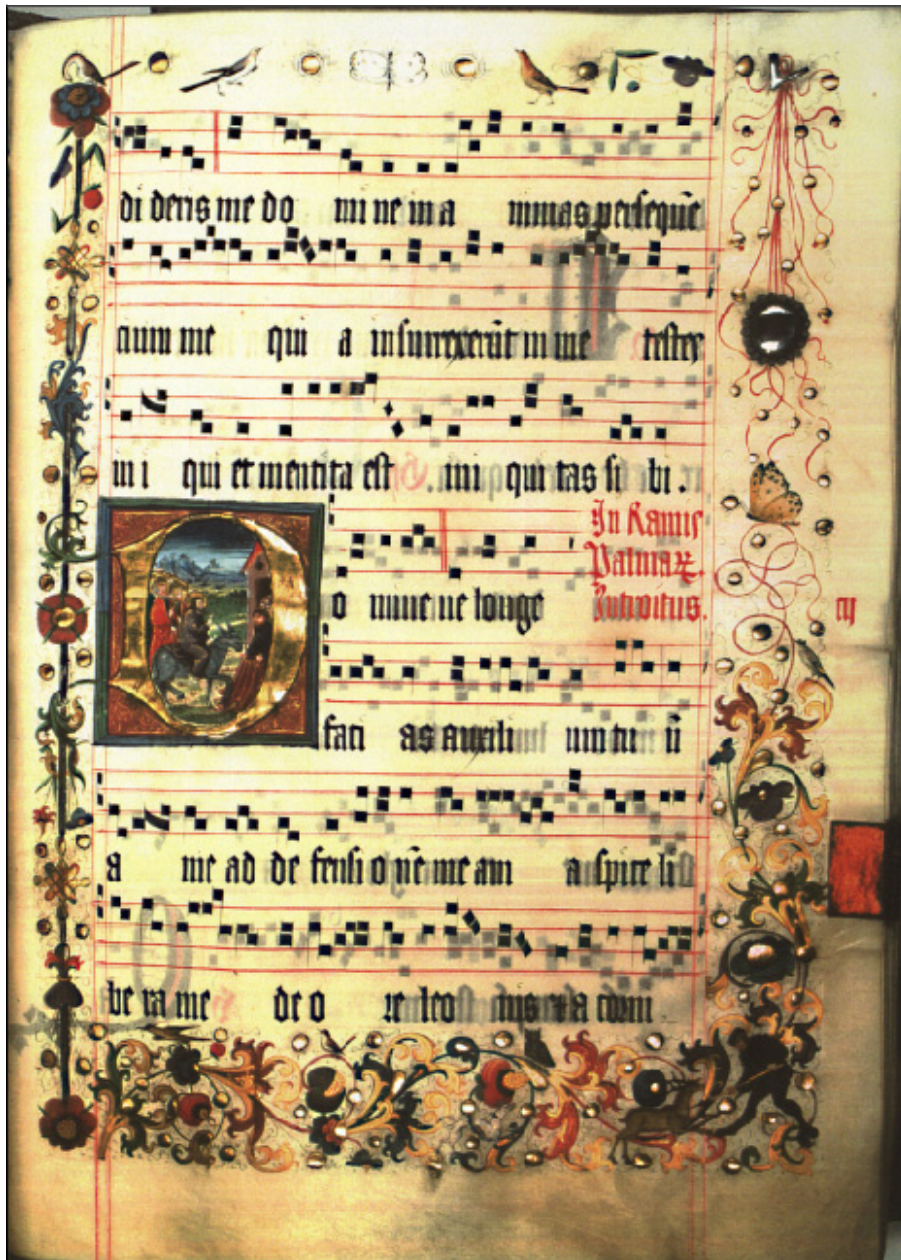 di deris me do mi ne in a nimas persequē
cium me qui a insurrexerūt in me testes
in i qui et mentita est ini qui tas si bi.
In Ramis
Palmaꝝ.
o mine ne longe Introitus.
faci as auxili um tu ū
a me ad de fensi o nē me am a spice li
be ra me de o re leo nis et a corni